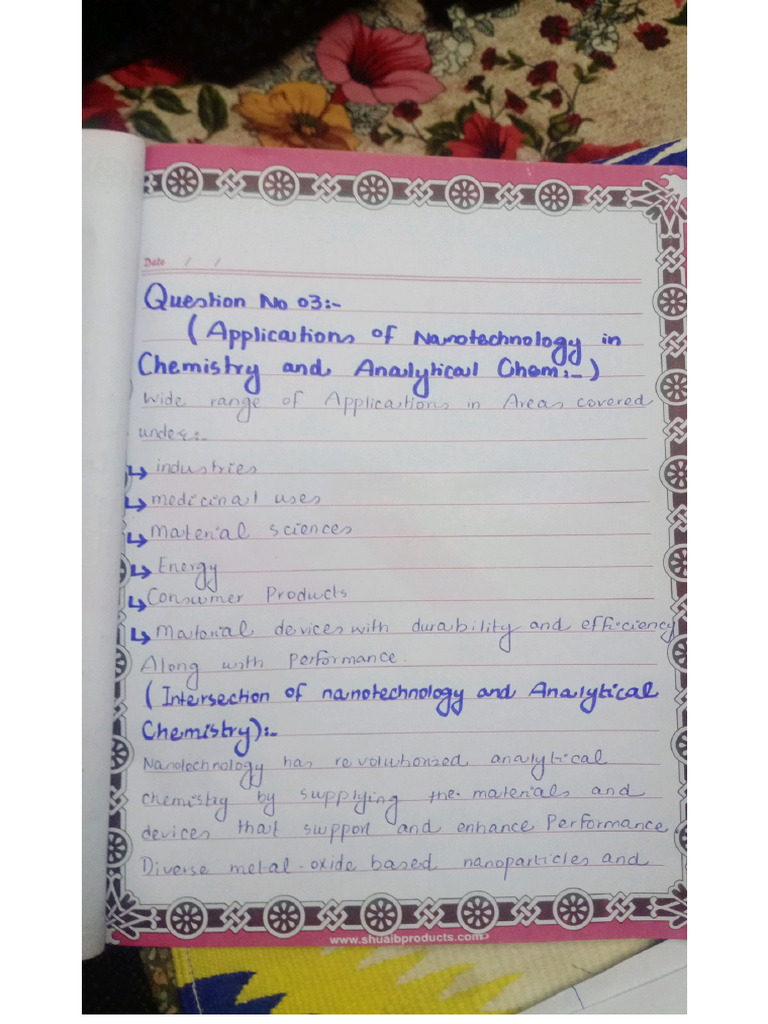 Date / /
Question No 03:-
(Applications of Nanotechnology in
Chemistry and Analytical Chem:-)
Wide range of Applications in Areas covered
under:-
↳ industries
↳ medicinal uses
↳ Material sciences
↳ Energy
↳ Consumer Products
↳ Material devices with durability and efficiency
Along with Performance.
(Intersection of nanotechnology and Analytical
Chemistry):-
Nanotechnology has revolutionized analytical
chemistry by supplying the materials and
devices that support and enhance Performance
Diverse metal-oxide based nanoparticles and
www.shuaibproducts.com